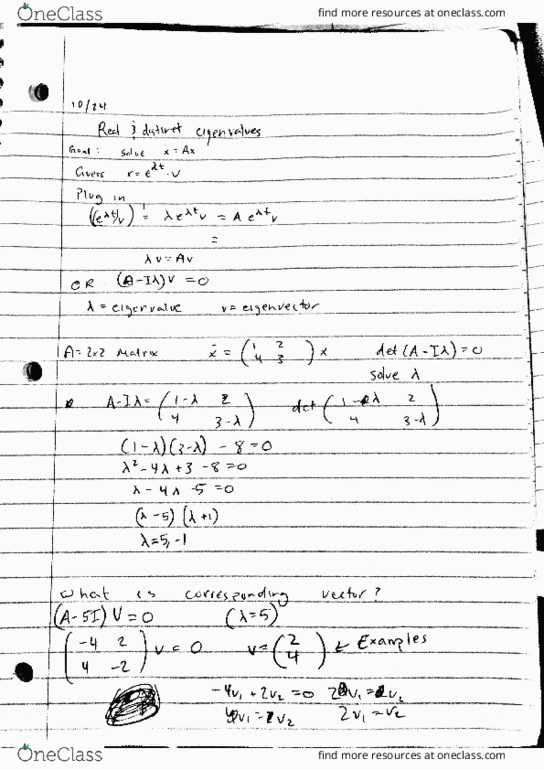 OneClass find more resources at oneclass.com
10/24
Real & distinct eigenvalues
Goal: solve ẋ = Ax
Guess x = e^λt · v
Plug in
(e^λt v)' = λe^λt v = A e^λt v
=
λv = Av
OR (A-Iλ)v = 0
λ = eigenvalue v = eigenvector
A = 2x2 Matrix ẋ = (1 2 / 4 3) x det(A-Iλ) = 0
solve λ
A-Iλ = (1-λ 2 / 4 3-λ) det (1-λ 2 / 4 3-λ)
(1-λ)(3-λ) - 8 = 0
λ² - 4λ + 3 - 8 = 0
λ - 4λ - 5 = 0
(λ-5)(λ+1)
λ = 5, -1
What is corresponding vector?
(A-5I)V = 0 (λ=5)
(-4 2 / 4 -2) v = 0 v = (2 / 4) ← Examples
-4v₁ + 2v₂ = 0 2v₁ = v₂
4v₁ = 2v₂ 2v₁ = v₂
OneClass find more resources at oneclass.com